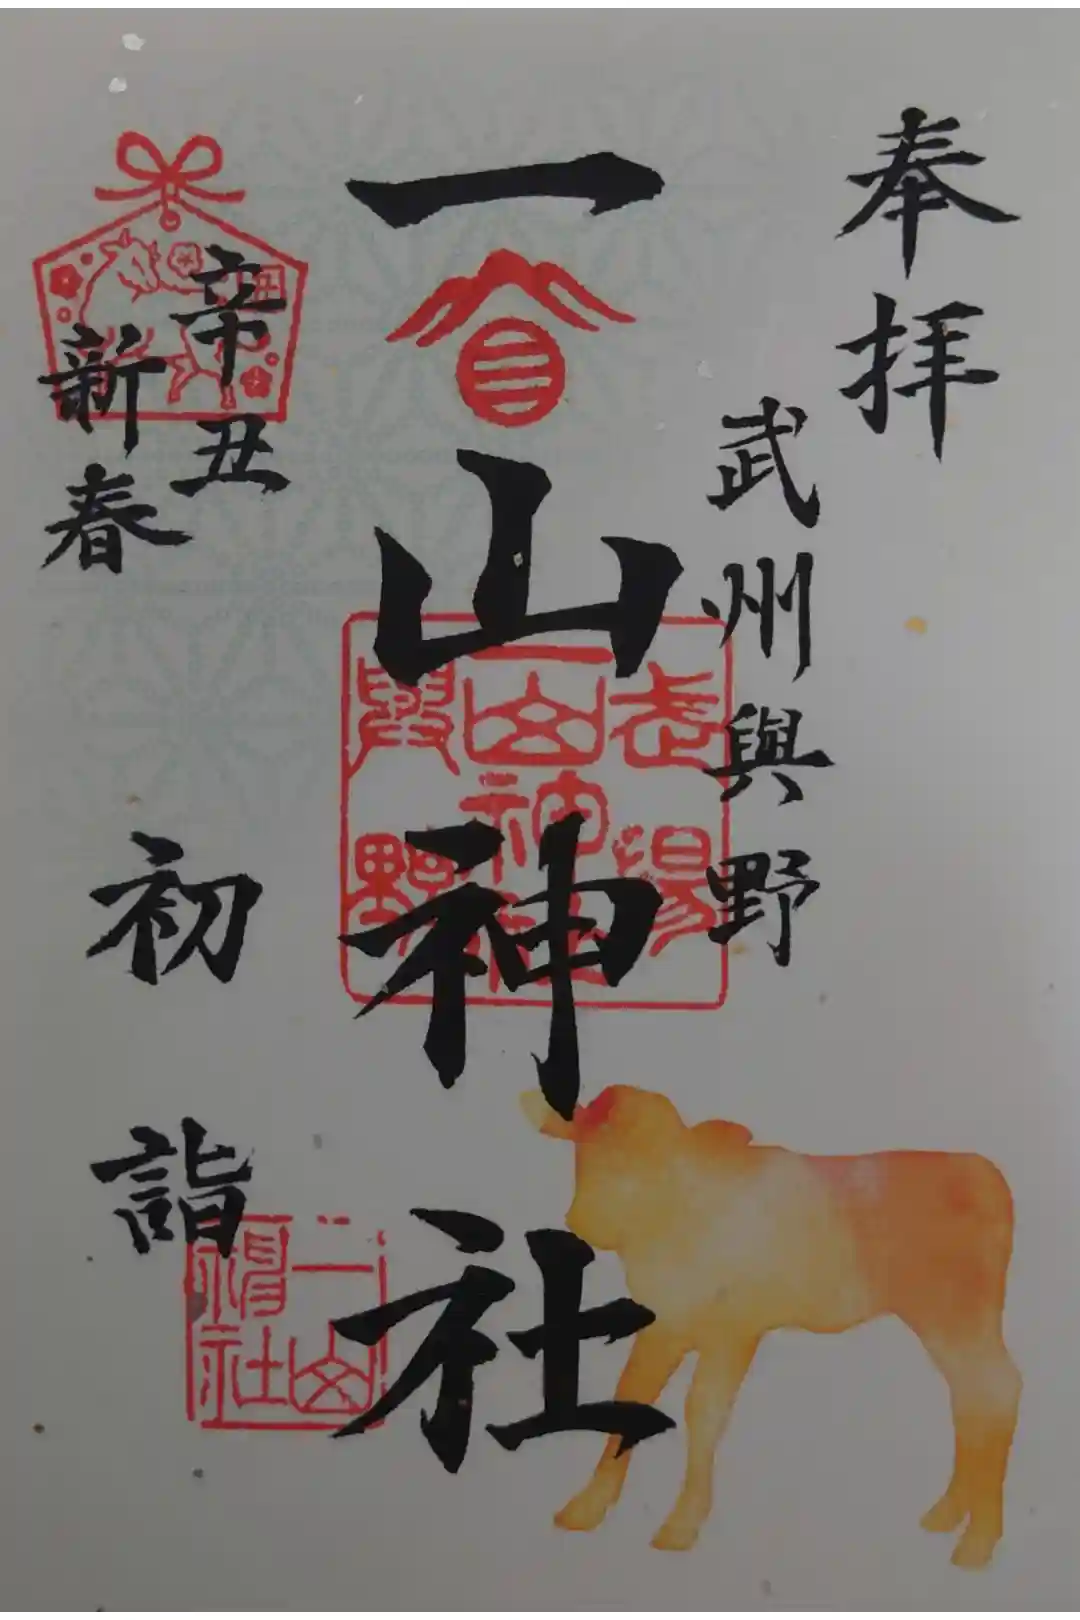 奉拝
武州與野
一山神社
辛丑
新春
初詣
一山
神社